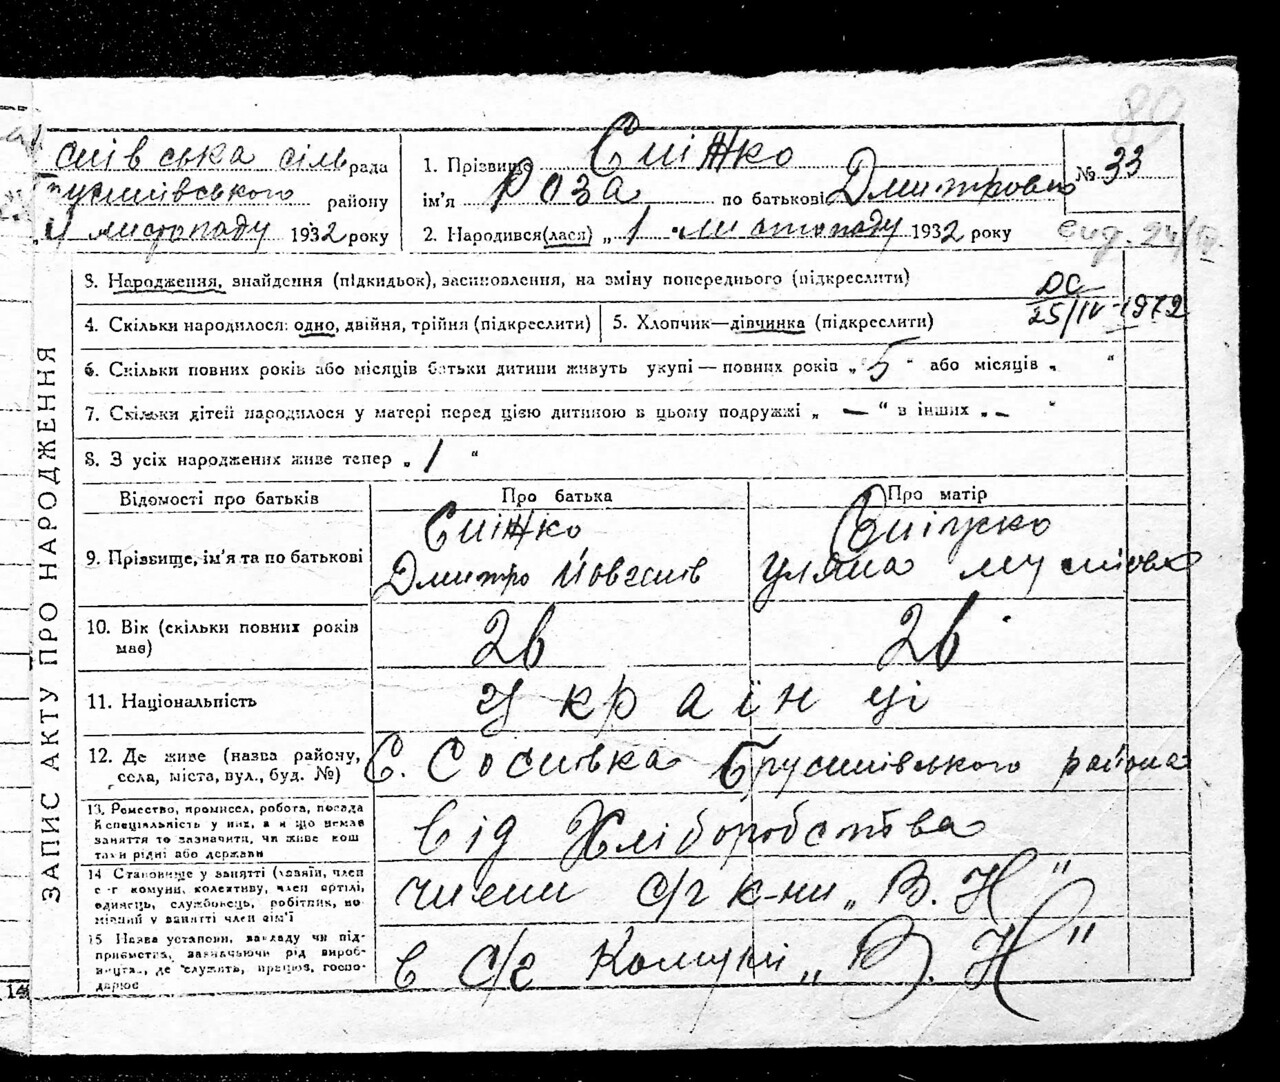 89
сільрада
Брусилівського району
листопаду 1932 року
1. Прізвище Сніжко
ім'я Роза по батькові Дмитровна
2. Народився(лася) „ 1 „ листопаду 1932 року
№ 33
вид. 24/IV.
ДС
25/IV-1972
ЗАПИС АКТУ ПРО НАРОДЖЕННЯ
3. Народження, знайдення (підкидьок), засиновлення, на зміну попереднього (підкреслити)
4. Скільки народилося: одно, двійня, трійня (підкреслити)
5. Хлопчик—дівчинка (підкреслити)
6. Скільки повних років або місяців батьки дитини живуть укупі — повних років „ 5 “ або місяців „ “
7. Скільки дітей народилося у матері перед цією дитиною в цьому подружжі „ — “ в інших „ – “
8. З усіх народжених живе тепер „ 1 “
Відомості про батьків
Про батька
Про матір
9. Прізвище, ім'я та по батькові
Сніжко
Дмитро
Сніжко
Уляна
10. Вік (скільки повних років має)
26
26
11. Національність
Українці
12. Де живе (назва району,
села, міста, вул., буд. №)
С. Соснівка Брусилівського района
13. Ремество, промисел, робота, посада
й спеціальність у них, а як що немає
заняття то зазначити, чи живе кош
тами рідні або держави
від Хліборобства
14 Становище у занятті (хазяїн, член
с-г комуни, колективу, член артілі,
одинець, службовець, робітник, по
мічний у занятті член сім'ї
члени с/г к-ни „В.Н“
15 Назва установи, закладу чи під-
приємства, зазначаючи рід вироб-
ництва, де служить, працює, госпо-
дарює
в с/г Комуні „В.Н“
14